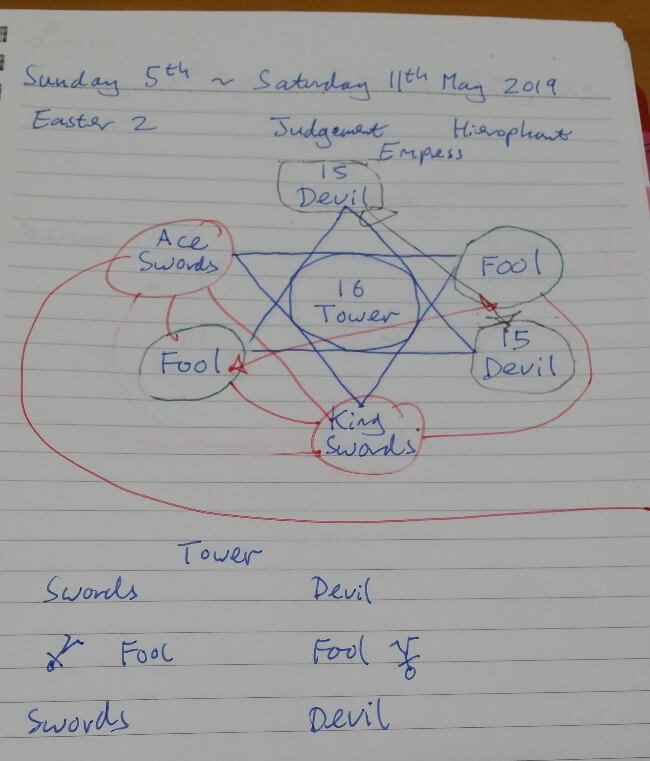 Sunday 5th ~ Saturday 11th May 2019
Easter 2 Judgement Hierophant
Empress
15
Devil
Ace
Swords
Fool
16
Tower
Fool
15
Devil
King
Swords
Tower
Swords Devil
Fool Fool
Swords Devil